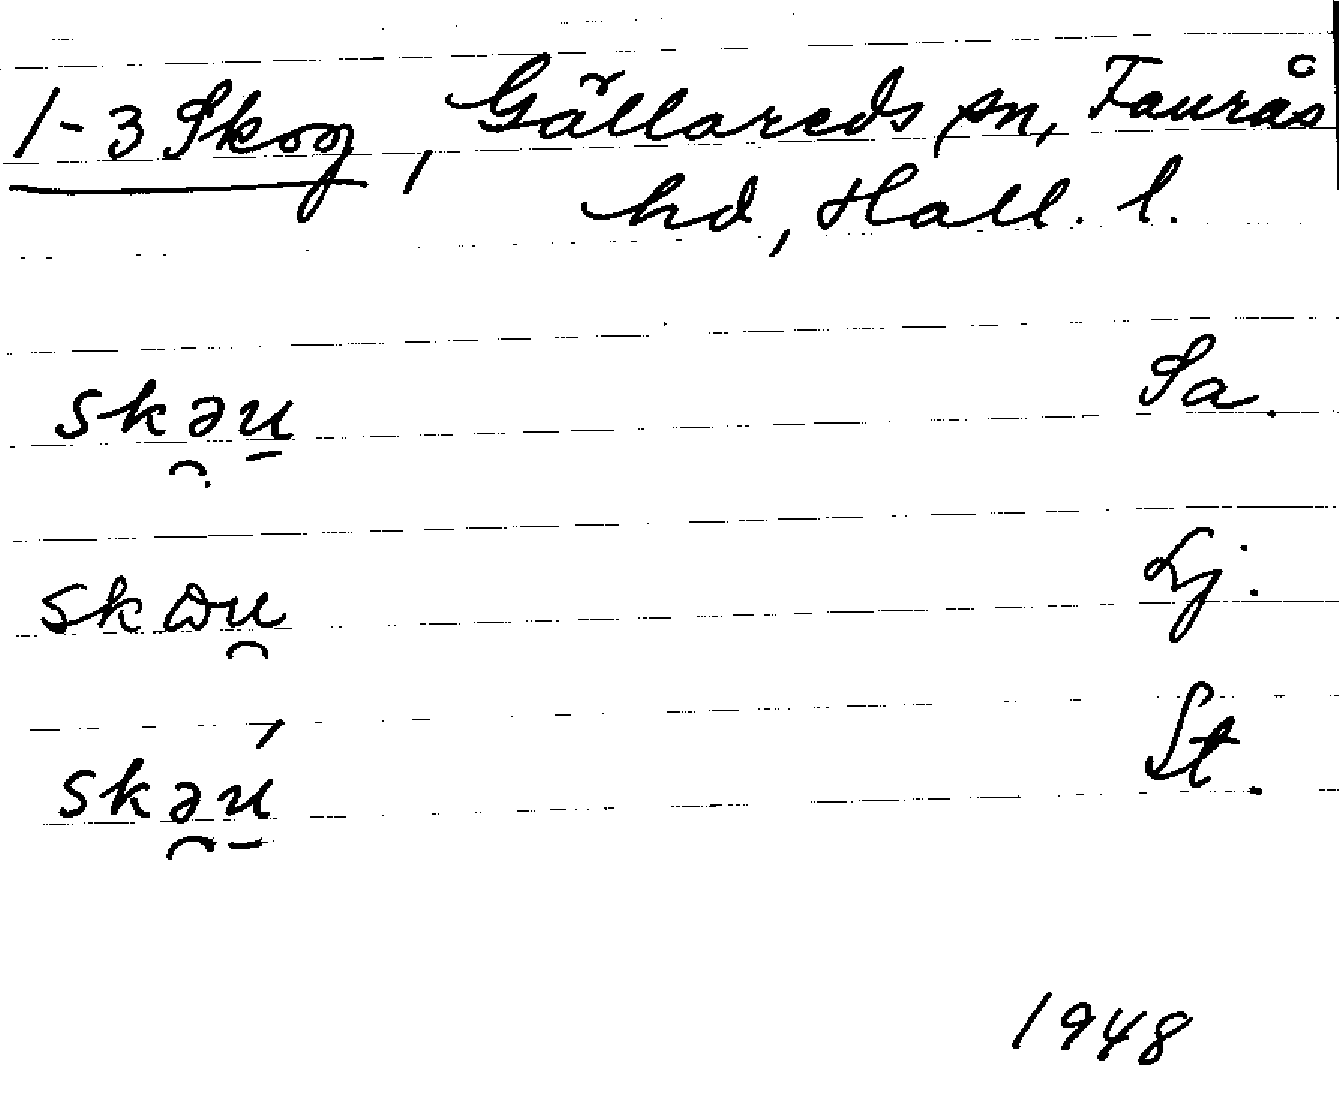 1-3 Skog, Gällareds sn, Faurås
hd, Hall. l.
skəu Sa.
skωu Lj.
skəú St.
1948